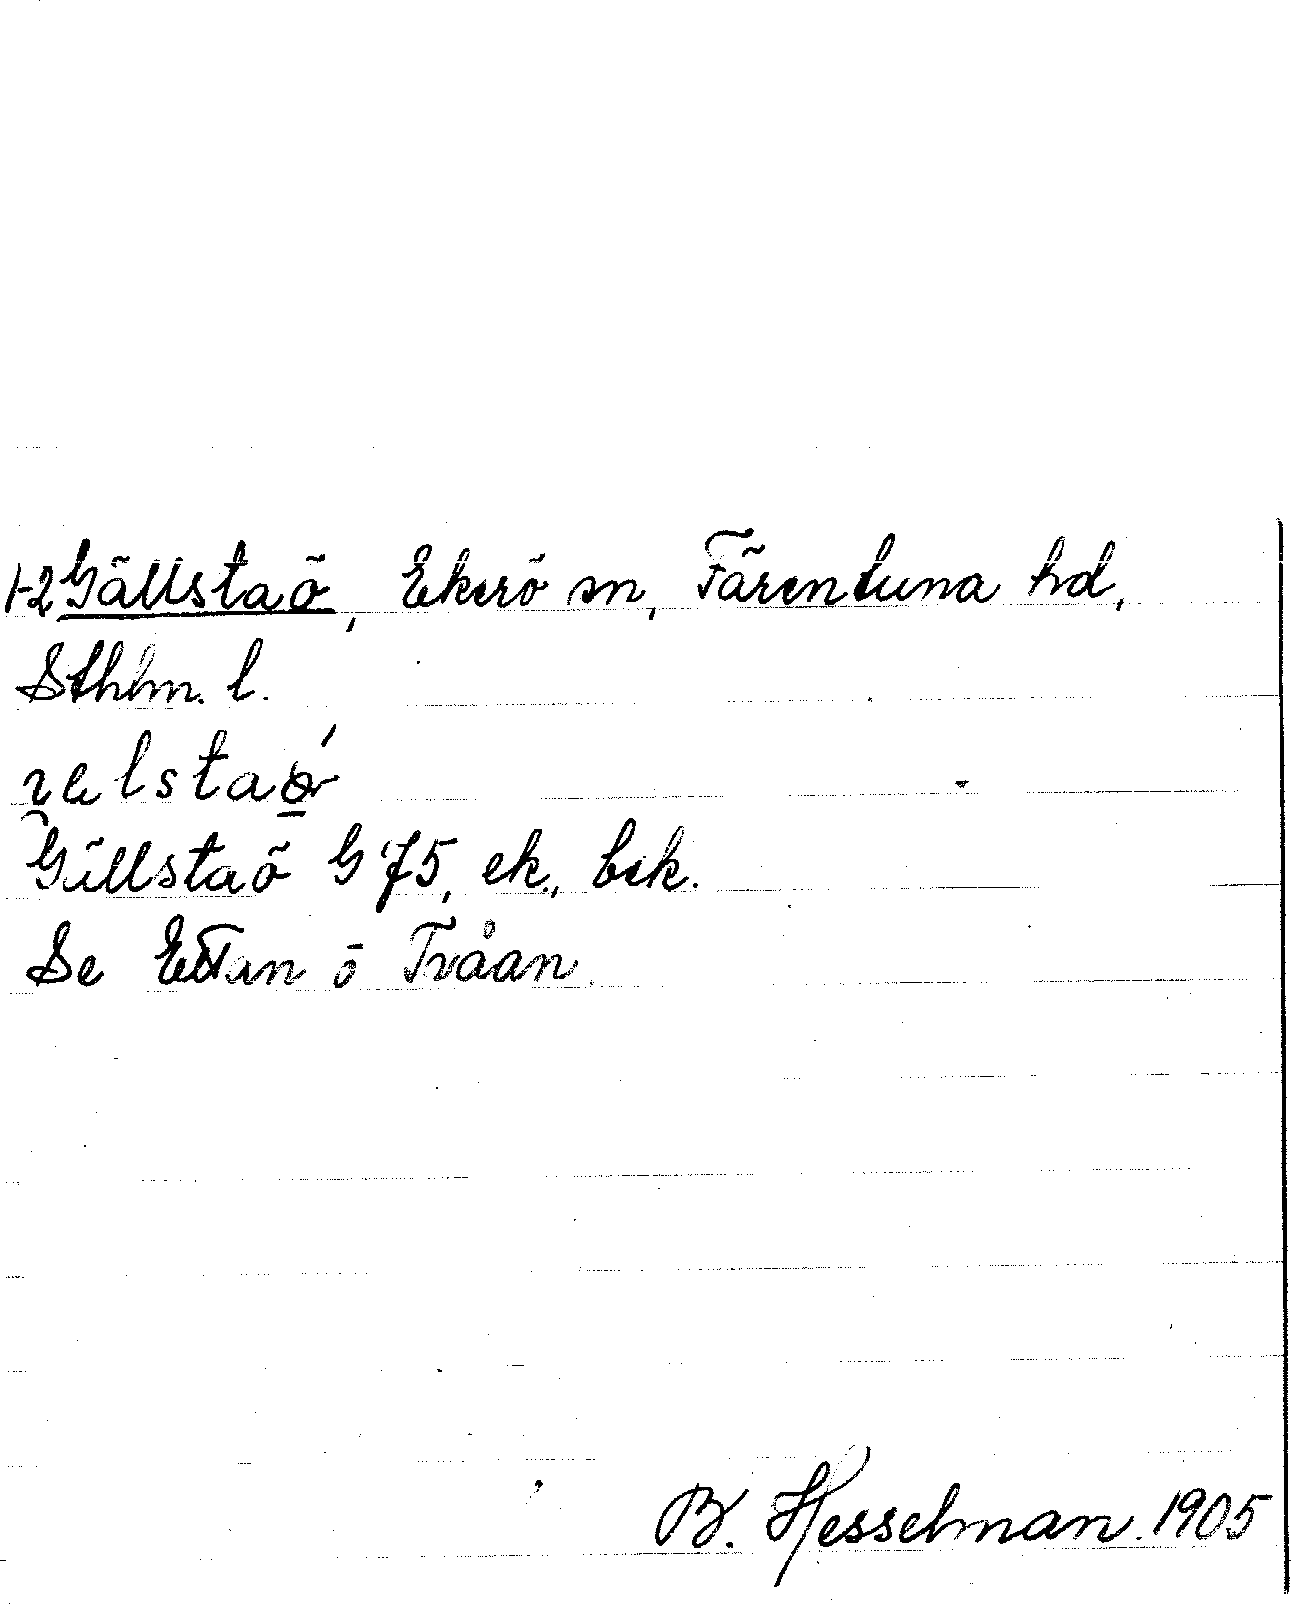 1-2 Gällstaö, Ekerö sn, Färentuna hd,
Sthlm. l.
Gällstaö G 75, ek., bek.
Se Ettan o Tvåan.
B. Hesselman. 1905